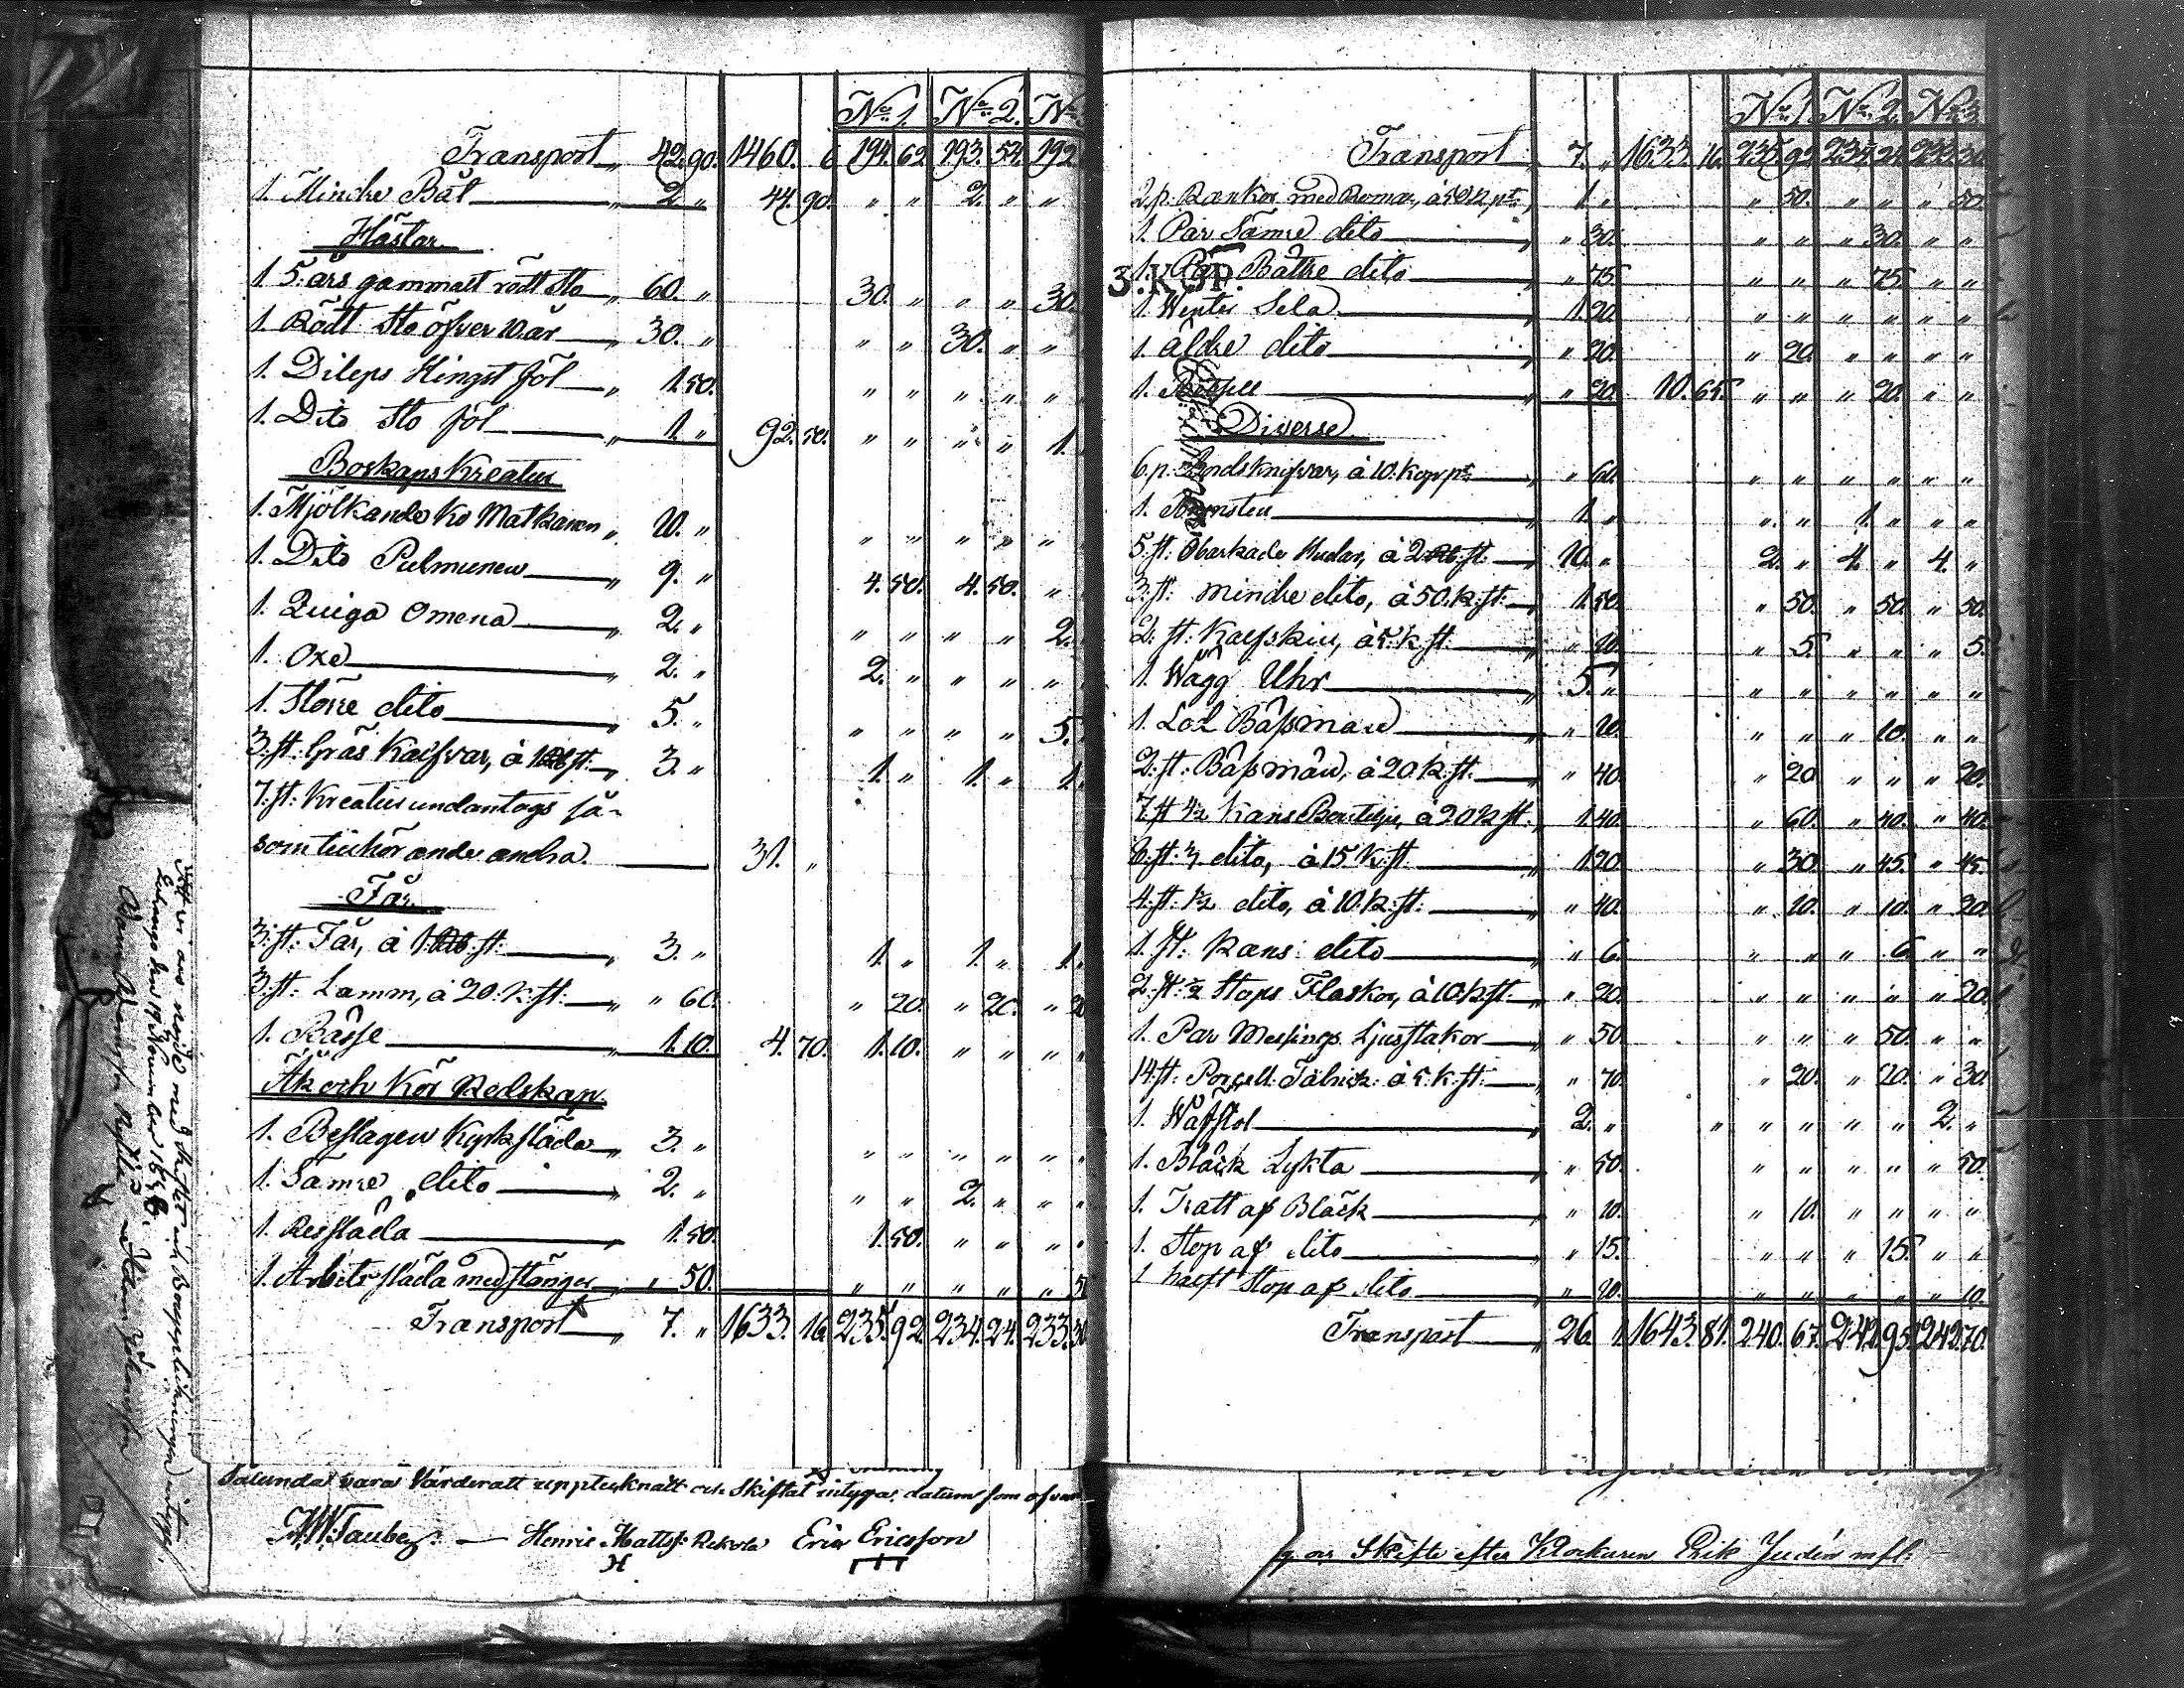 No. 1. No. 2. No.
Transport „ 42. 90. 1460. 6 194. 62 193. 54. 192
1. Mindre Båt „ 2. „ 44. 90. „ „ 2. „ „
Hästar
1 5. års gammalt rödt Sto „ 60. „ 30. „ „ „ 30.
1. Rödt Sto öfver 10. år „ 30. „ „ „ 30. „ „
1. Dileps Hingst föl „ 1. 50. „ „ „ „ „
1. Dito Sto föl „ 1. „ 92. 50. „ „ „ „ 1.
Boskaps Kreatur
1. Mjölkande Ko Matkanen „ 10. „ „ „ „ „ „
1. Dito Pulmunen „ 9. „ 4. 50. 4. 50. „
1. Quiga Omena „ 2. „ „ „ „ „ 2.
1. Oxe „ 2. „ 2. „ „ „ „
1. Större dito „ 5. „ „ „ „ „ 5.
3. st: Gräs Kalfvar, à 1 Rb st: „ 3. „ 1. „ 1. „ 1.
7. st: Kreatur undantogs så-
som tillhörande andra 31. „
Får
3. st: Får, à 1 Rb. st: „ 3. „ 1. „ 1. „ 1.
3. st: Lamm, à 20. k. st: „ „ 60. „ 20. „ 20. „ 2
1. Båsse „ 1. 10. 4. 70. 1. 10. „ „ „ „
Åk och Kör Redskap.
1. Beslagen Kyrksläda „ 3. „ „ „ „ „ „
1. Sämre dito „ 2. „ „ „ 2. „ „
1. Ressläda „ 1. 50. 1. 50. „ „ „
1. Arbets släda med stänger „ „ 50. „ „ „ „ „ 5
Transport „ 7. „ 1633. 16. 235. 92. 234. 24. 233. 30
Sålunda vara Värderatt upptecknatt och Skiftat intyga, datum som ofvan
Henric Mattss: Rekola Eric Ericsson
H
No. 1. No. 2. No. 3
Transport „ 7. „ 1633. 16. 235. 92. 234. 24. 233. 30.
2. p. Rankor med Romar, à 50 k pr. „ 1. „ „ 50. „ „ „ 50.
1. Par Sämre dito „ „ 30. „ „ „ 30. „ „
1. Par Bättre dito „ „ 75. „ „ „ 75. „ „
3. KOP.
1. Winter Sela „ 1. 20. „ „ „ „ „ „
1. äldre dito „ „ 20. „ 20. „ „ „ „
1. „ „ 20. 10. 65. „ „ „ 20. „ „
Diverse
6. p. Bordsknifvar, à 10. kop pr. „ „ 60. „ „ „ „ „ „
1. „ 1. „ „ „ 1. „ „ „
5. st: Obarkade Hudar, à 2 Rb. st: „ 10. „ 2. „ 4. „ 4. „
3. st: mindre dito, à 50. k. st: „ 1. 50. „ 50. „ 50. „ 50.
2. st: Kalfskin, à 5. k. st: „ „ 10. „ 5. „ „ „ 5.
1. Wägg Uhr „ 5. „ „ „ „ „ „ „
1. Lod Båssman „ „ 10. „ „ „ 10. „ „
2. st: Båssman, à 20. k. st: „ „ 40. „ 20. „ „ „ 20.
7. st 1/2 Kans Bouteljer, à 20 k st: „ 1. 40. „ 60. „ 40. „ 40.
8. st: dito, à 15. k. st: „ 1. 20. „ 30. „ 45. „ 45.
4. st: 1/2 dito, à 10. k. st: „ „ 40. „ 10. „ 10. „ 20.
1. st: Kans: dito „ „ 6. „ „ „ 6. „ „
2. st: 1/2 Stops Flaskor, à 10. k. st: „ „ 20. „ „ „ „ „ 20.
1. Par Messings Ljusstakor „ „ 50. „ „ „ 50. „ „
14. st: Porsell: Talrick: à 5. k. st: „ „ 70. „ 20. „ 20. „ 30.
1. Wäfstol „ 2. „ „ „ „ „ „ 2. „
1. Bläck Lykta „ „ 50. „ „ „ „ „ 50.
1. Tratt af Bläck „ „ 10. „ 10. „ „ „ „
1. Stop af dito „ „ 15. „ „ „ 15. „ „
1 halft Stop af dito „ „ 10. „ „ „ „ „ 10.
Transport „ 26. 1. 1643. 81. 240. 67. 242. 95. 242. 70.
Skifte efter Klockaren Erik Judén mfl: